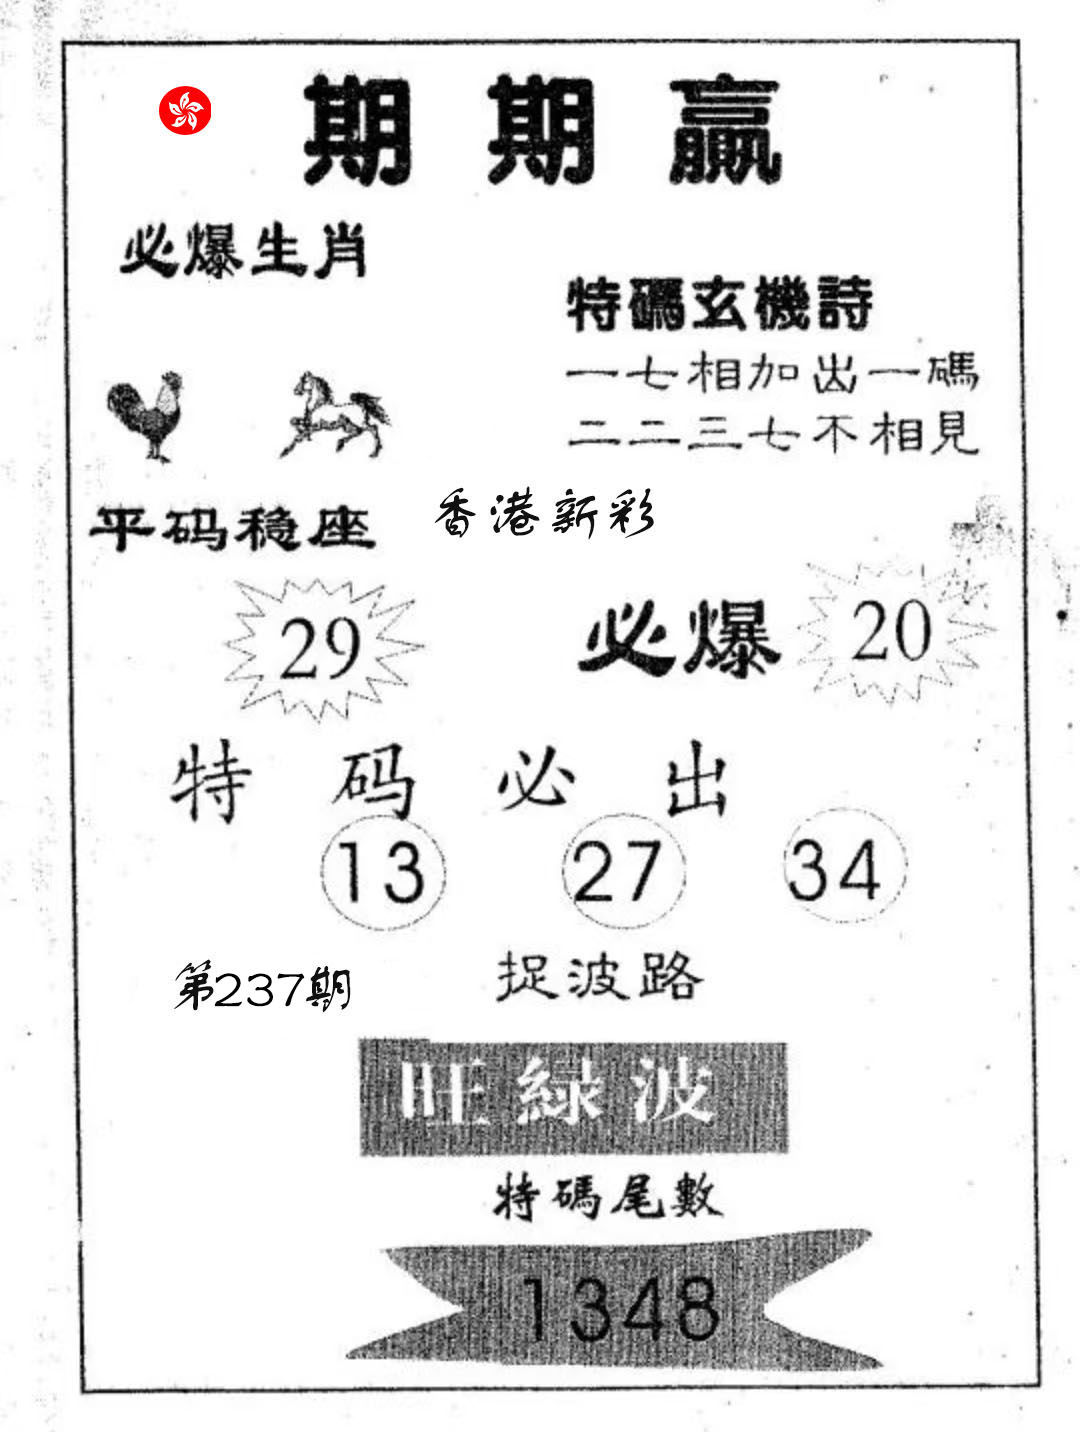 期期贏
必爆生肖
特碼玄機詩
一七相加出一碼
二二三七不相見
平码稳座
香港新彩
29
必爆
20
特码必出
13 27 34
第237期
捉波路
旺綠波
特碼尾數
1348